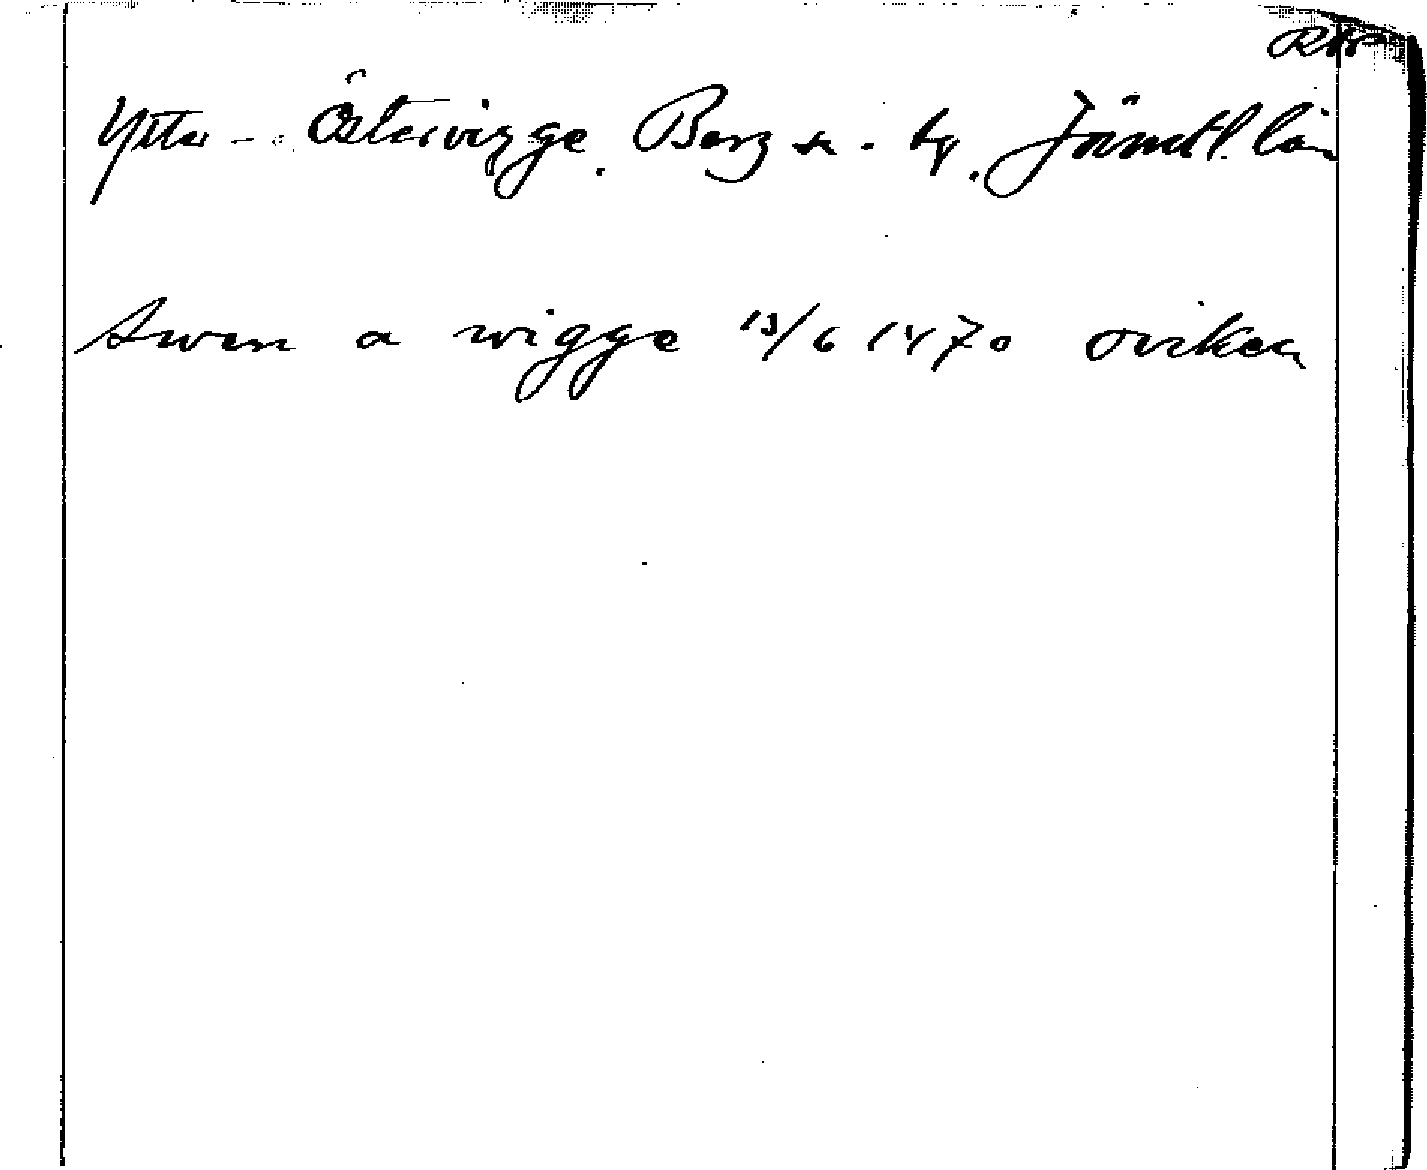 Ytter - Östervigge. Berg sn. hg. Jämtl. län
Swen a wigge 13/6 1470 oviken